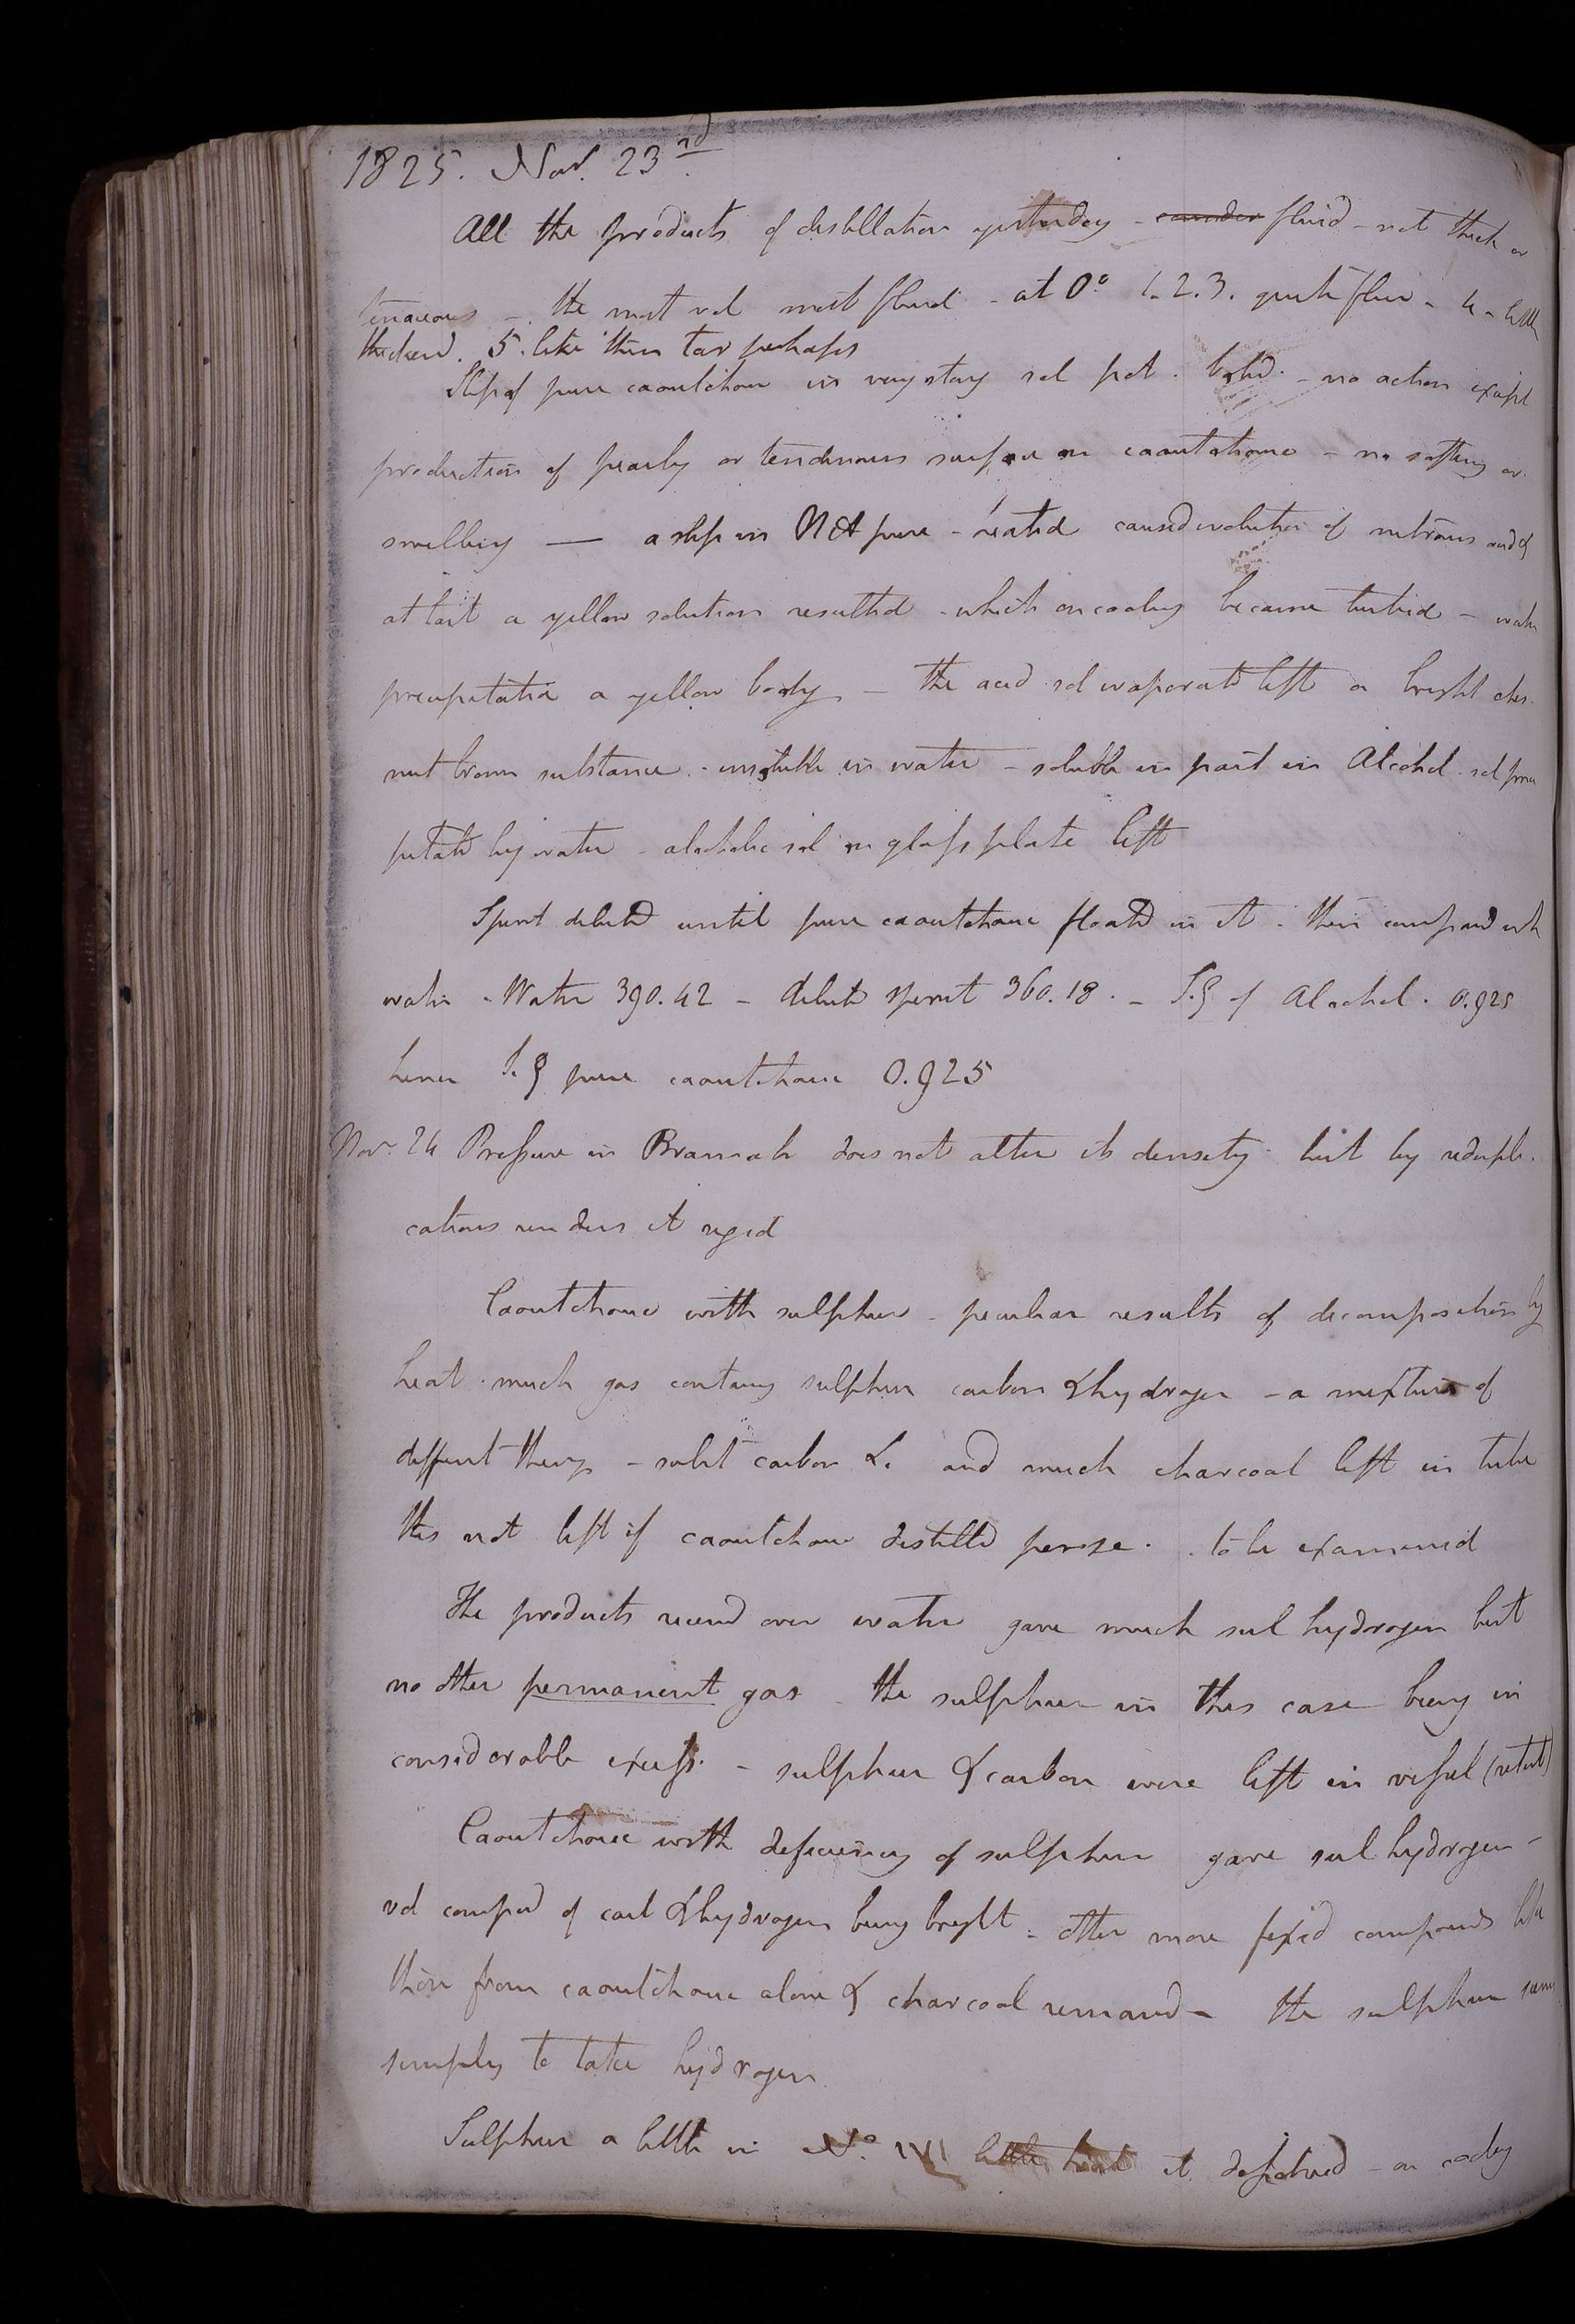 1825. Nov. 23rd
All the products of distillation yesterday - fluid - not thick or
tenacious - the most vol most fluid - at 0° 1. 2. 3. quite fluid - 4 - little
thickend. 5. like thin tar perhaps
Slip of pure caoutchouc in very strong sol pot. boild. - no action except
production of pearly or tendinous surface on caoutchouc - no softing or
swelling — a slip in NA pure - heated caused evolution of nitrous acid &
at last a yellow solution resulted - which on cooling became turbid - water
precipitated a yellow body - the acid sol evaporated left a bright ches-
nut brown substance - insoluble in water - soluble in part in Alcohol - sol preci
pitated by water - alcoholic sol on glass plate left
Spirit diluted until pure caoutchouc floated in it - then compared with
water - Water 390.42 - dilute spirit 360.18. - S.g of Alcohol. 0.925
hence S.g pure caoutchouc 0.925
Nov. 24 Pressure in Bramah does not alter its density but by redupli-
cations renders it rigid
Caoutchouc with sulphur - peculiar results of decomposition by
heat. much gas containg sulphur carbon & hydrogen - a mixture of
different things - sulrt carbon &c and much charcoal left in tube
this not left if caoutchouc distilled per se. to be examined
The products recevd over water gave much sul hydrogen but
no other permanent gas - the sulphur in this case being in
considerable excess - sulphur & carbon were left in vessel (retort)
Caoutchouc with deficiency of sulphur gave sul hydrogen -
vol compod of carb & hydrogen being bright - other more fixed compounds like
those from caoutchouc alone & charcoal remaind - the sulphur seems
simply to take hydrogen
Sulphur a little in No. little heat it dissolved - on cooling